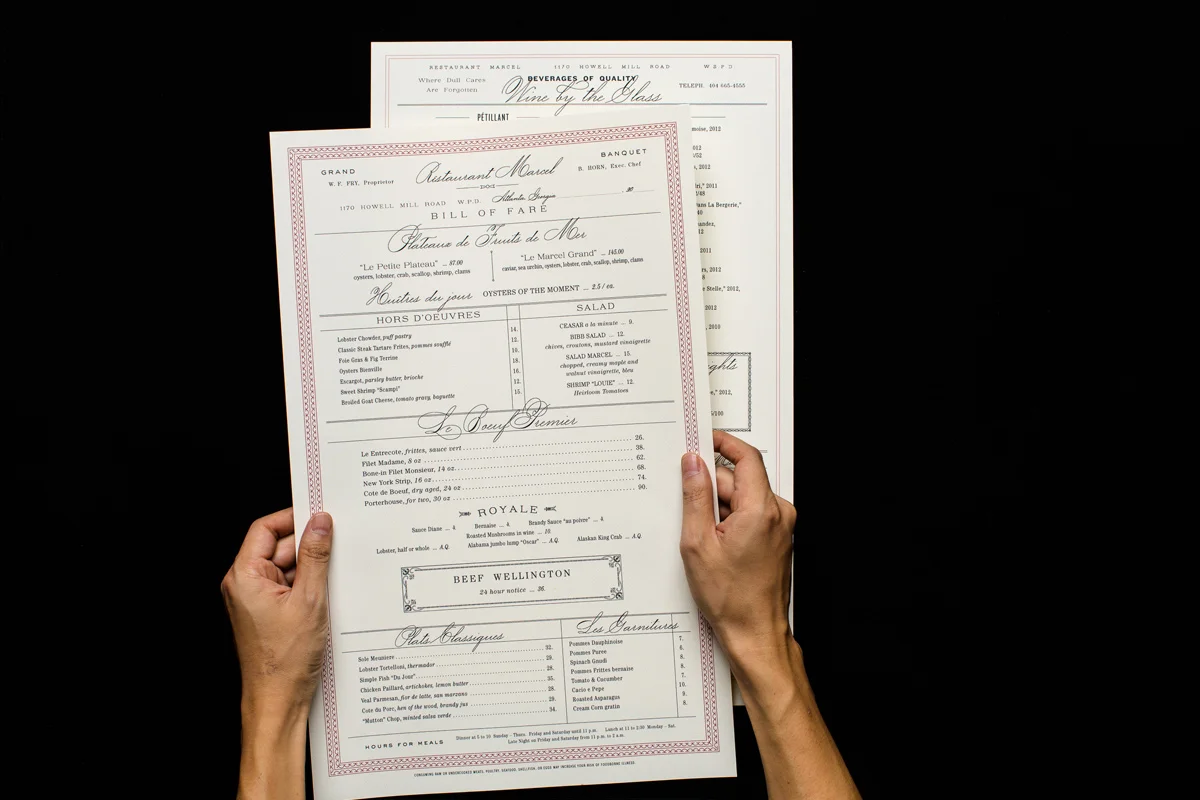 RESTAURANT MARCEL 1170 HOWELL MILL ROAD W.P.D.
Where Dull Cares
Are Forgotten
BEVERAGES OF QUALITY
Wine by the Glass
TELEPH. 404 665-4555
PÉTILLANT
GRAND
W. F. FRY, Proprietor
Restaurant Marcel
BANQUET
B. HORN, Exec. Chef
1170 HOWELL MILL ROAD W.P.D. Atlanta, Georgia 20
BILL OF FARE
Plateaux de Fruits de Mer
"Le Petite Plateau" ... 87.00
oysters, lobster, crab, scallop, shrimp, clams
"Le Marcel Grand" ... 145.00
caviar, sea urchin, oysters, lobster, crab, scallop, shrimp, clams
Huîtres du jour OYSTERS OF THE MOMENT ... 2.5 / ea.
HORS D'OEUVRES
Lobster Chowder, puff pastry 14.
Classic Steak Tartare Frites, pommes soufflé 13.
Foie Gras & Fig Terrine 19.
Oysters Bienville 18.
Escargot, parsley butter, brioche 16.
Sweet Shrimp "Scampi" 12.
Broiled Goat Cheese, tomato gravy, baguette 15.
SALAD
CEASAR a la minute ... 9.
BIBB SALAD ... 12.
chives, croutons, mustard vinaigrette
SALAD MARCEL ... 15.
chopped, creamy maple and
walnut vinaigrette, bleu
SHRIMP "LOUIE" ... 12.
Heirloom Tomatoes
Le Boeuf Premier
Le Entrecote, frittes, sauce vert 26.
Filet Madame, 8 oz 38.
Bone-in Filet Monsieur, 14 oz. 62.
New York Strip, 16 oz. 68.
Cote de Boeuf, dry aged, 24 oz 74.
Porterhouse, for two, 30 oz 90.
ROYALE
Sauce Diane ... 4. Bernaise ... 4. Brandy Sauce "au poivre" ... 4.
Roasted Mushrooms in wine ... 10.
Lobster, half or whole ... A.Q. Alabama jumbo lump "Oscar" ... A.Q. Alaskan King Crab ... A.Q.
BEEF WELLINGTON
24 hour notice ... 36.
Plats Classiques
Sole Meuniere 32.
Lobster Tortelloni, thermador 29.
Simple Fish "Du Jour" 28.
Chicken Paillard, artichokes, lemon butter 25.
Veal Parmesan, fior de latte, san marzano 28.
Cote du Porc, hen of the wood, brandy jus 29.
"Mutton" Chop, minted salsa verde 34.
Les Garnitures
Pommes Dauphinoise 7.
Pommes Puree 6.
Spinach Gnudi 8.
Pommes Frittes bernaise 8.
Tomato & Cucumber 7.
Cacio e Pepe 10.
Roasted Asparagus 9.
Cream Corn gratin 8.
HOURS FOR MEALS
Dinner at 5 to 10 Sunday - Thurs. Friday and Saturday until 11 p.m. Lunch at 11 to 2:30 Monday - Sat.
Late Night on Friday and Saturday from 11 p.m. to 2 a.m.
CONSUMING RAW OR UNDERCOOKED MEATS, POULTRY, SEAFOOD, SHELLFISH, OR EGGS MAY INCREASE YOUR RISK OF FOODBORNE ILLNESS.